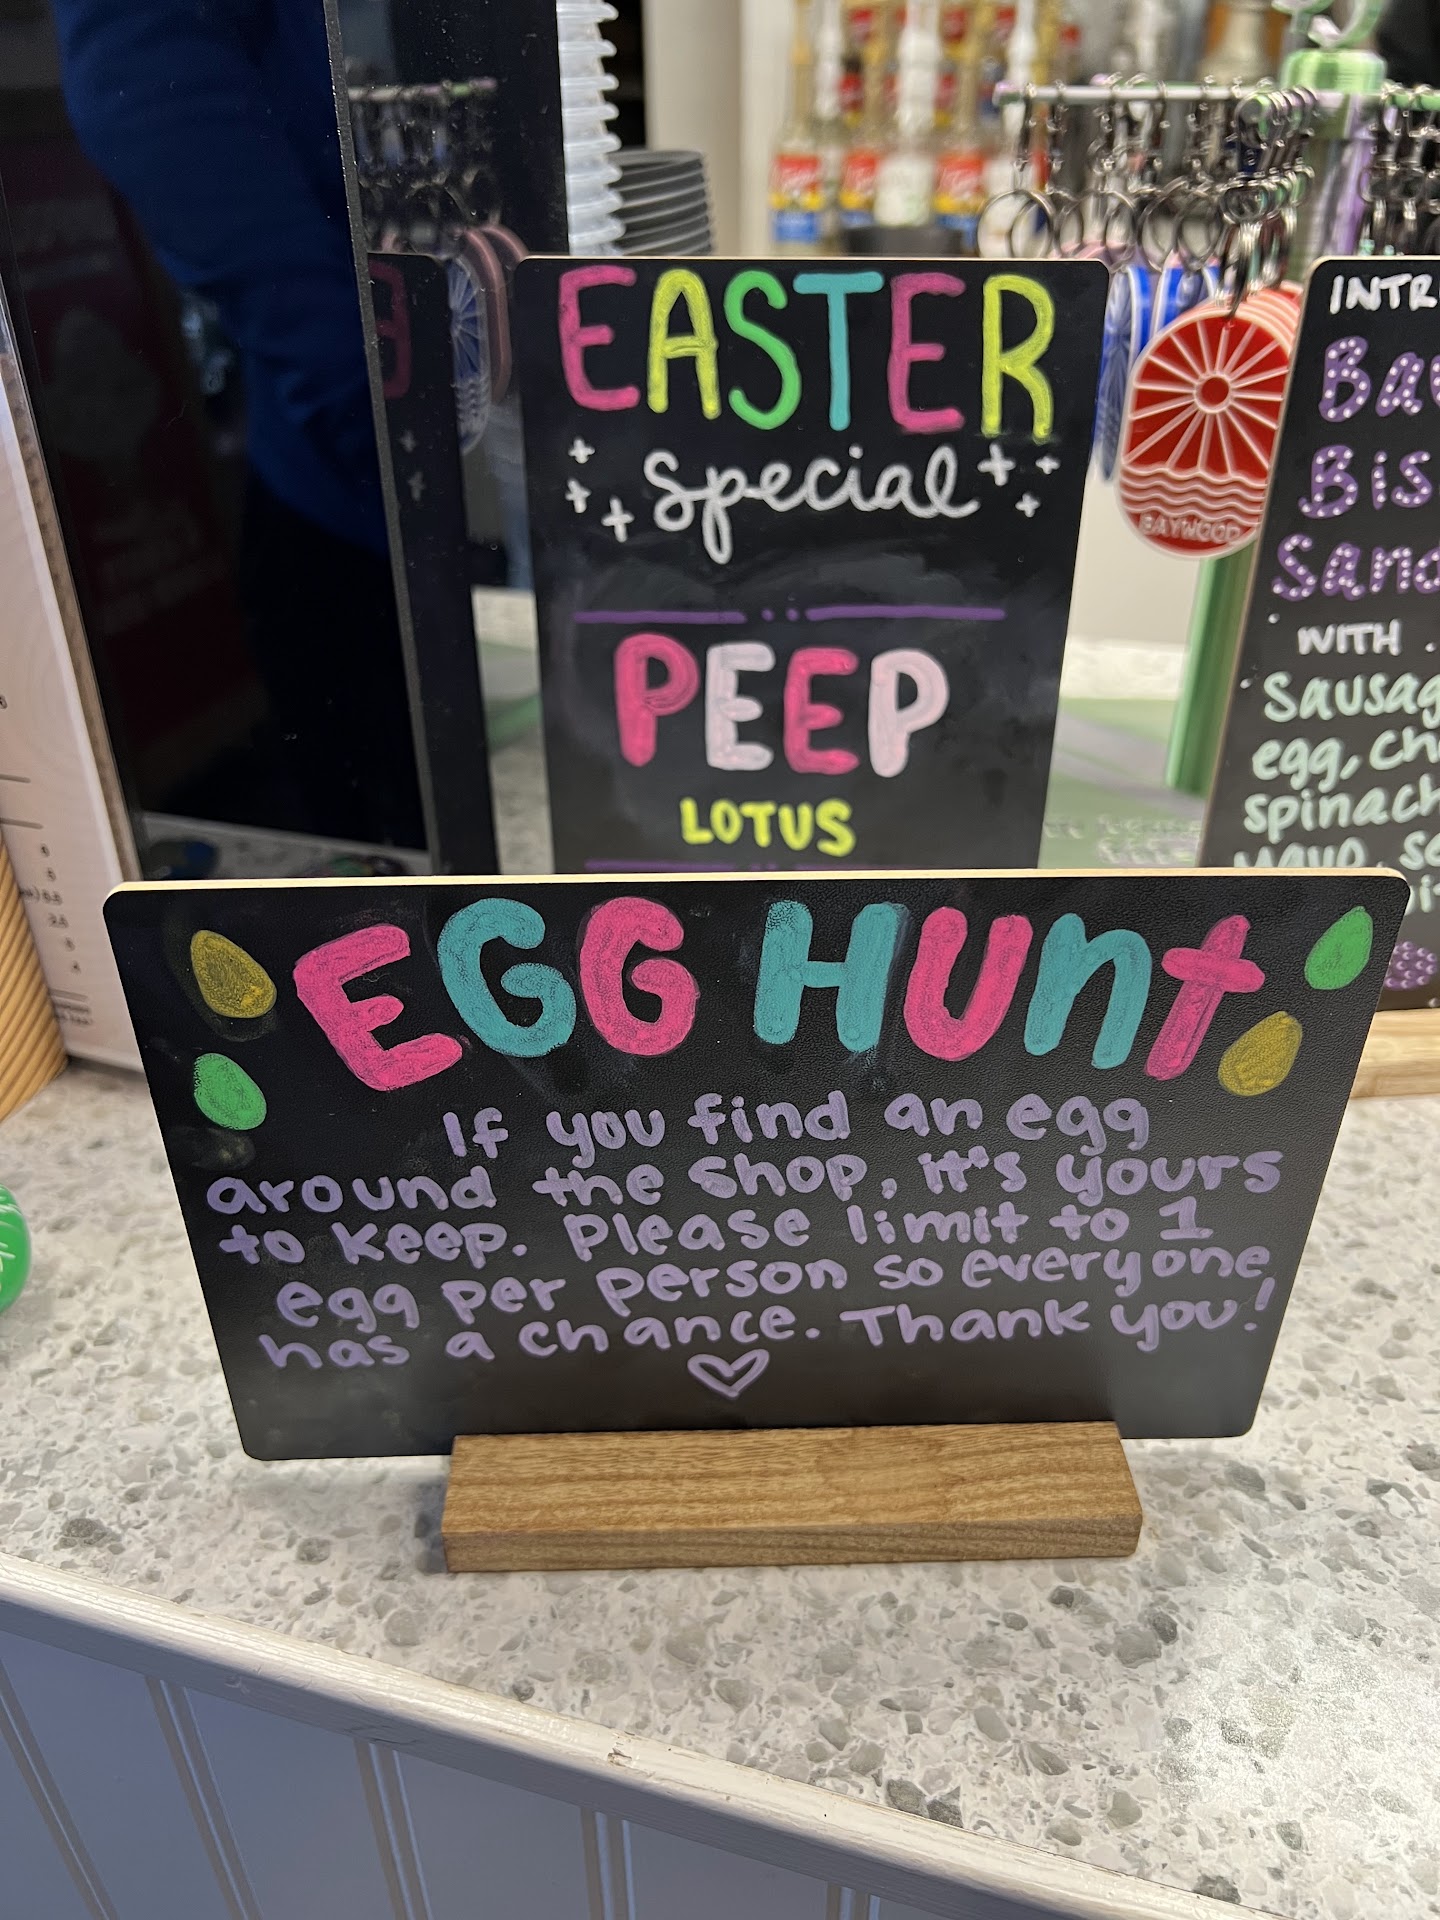 EASTER
Special
PEEP
LOTUS
INTR
Bis
WITH
Sausag
egg, ch
spinach
mayo, s
BAYWOOD
EGG HUnt
If you find an egg
around the shop, it's yours
to keep. Please limit to 1
egg per person so everyone
has a chance. Thank you!